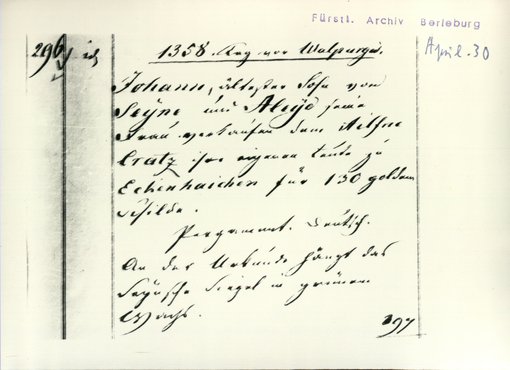 Fürstl. Archiv Berleburg
April. 30
296
1358. Tag vor Walpurgis.
Johann, ältester Sohn von
Seÿne und Aleÿd seine
Frau verkaufen dem
Cratz ihre eigenen Leute zu
Eckenhaichen für 130 goldene
Schilde.
Pergament. Deutsch.
An der Urkunde hängt das
Saÿnsche Siegel in grünem
Wachs.
397